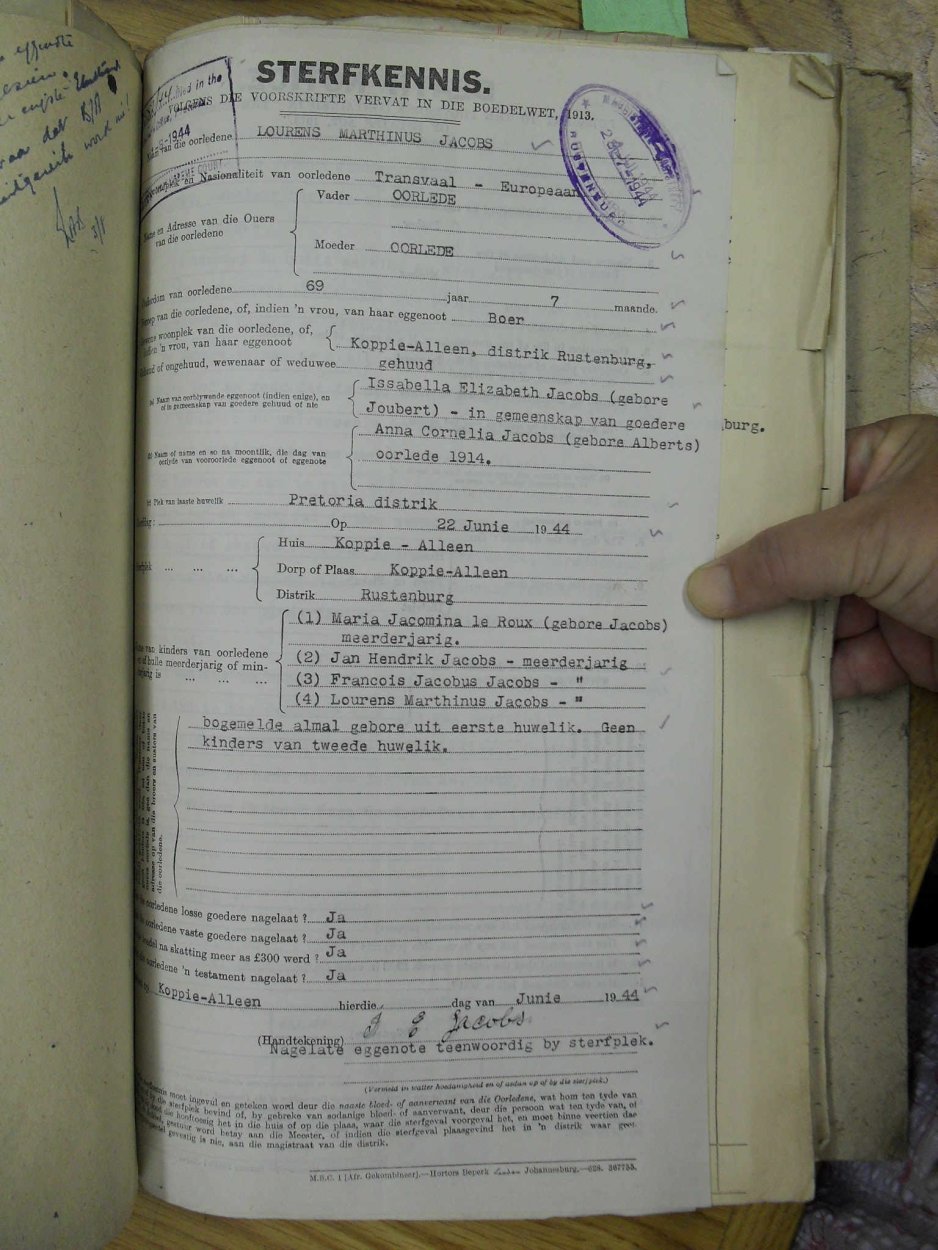 STERFKENNIS.
VOLGENS DIE VOORSKRIFTE VERVAT IN DIE BOEDELWET, 1913.
Naam van die oorledene LOURENS MARTHINUS JACOBS
en Nasionaliteit van oorledene Transvaal - Europeaan
Vader OORLEDE
Name en Adresse van die Ouers
van die oorledene
Moeder OORLEDE
Ouderdom van oorledene 69 jaar 7 maande.
Beroep van die oorledene, of, indien 'n vrou, van haar eggenoot Boer
Gewone woonplek van die oorledene, of,
indien 'n vrou, van haar eggenoot
Koppie-Alleen, distrik Rustenburg,
Gehuud of ongehuud, wewenaar of weduwee gehuud
(a) Naam van oorblywende eggenoot (indien enige), en
of in gemeenskap van goedere gehuud of nie
Issabella Elizabeth Jacobs (gebore
Joubert) - in gemeenskap van goedere
burg.
(b) Naam of name en so na moontlik, die dag van
oorlyde van vooroorlede eggenoot of eggenote
Anna Cornelia Jacobs (gebore Alberts)
oorlede 1914.
(c) Plek van laaste huwelik Pretoria distrik
Op 22 Junie 1944
Huis Koppie - Alleen
Sterfplek ... ... ... Dorp of Plaas Koppie-Alleen
Distrik Rustenburg
Name van kinders van oorledene
en of hulle meerderjarig of min-
derjarig is ... ... ...
(1) Maria Jacomina le Roux (gebore Jacobs)
meerderjarig.
(2) Jan Hendrik Jacobs - meerderjarig
(3) Francois Jacobus Jacobs - "
(4) Lourens Marthinus Jacobs - "
bogemelde almal gebore uit eerste huwelik. Geen
kinders van tweede huwelik.
die oorledene.
oorledene losse goedere nagelaat ? Ja
oorledene vaste goedere nagelaat ? Ja
boedel na skatting meer as £300 werd ? Ja
oorledene 'n testament nagelaat ? Ja
Koppie-Alleen hierdie dag van Junie 1944
I E Jacobs
(Handtekening)
Nagelate eggenote teenwoordig by sterfplek.
(Vermeld in watter hoedanigheid en of antan op of by die sterfplek.)
moet ingevul en geteken word deur die naaste bloed- of aanverwant van die Oorledene, wat hom ten tyde van
sterfplek bevind of, by gebreke van sodanige bloed- of aanverwant, deur die persoon wat ten tyde van, of
die hooftoesig het in die huis of op die plaas, waar die sterfgeval voorgeval het, en moet binne veertien dae
gestuur word aan die Meester, of indien die sterfgeval plaasgevind het in 'n distrik waar geen
gevestig is nie, aan die magistraat van die distrik.
M.B.C. 1 [Afr. Gekombineer].—Hortors Beperk Johannesburg.—628. 367755.